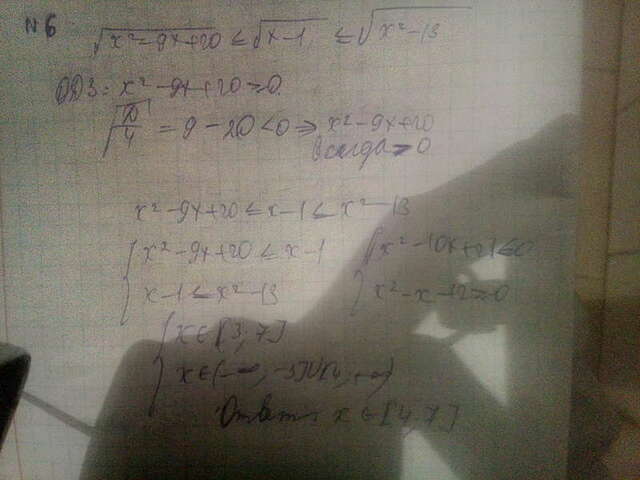 N6
√x²-9x+20 ≤ √x-1 ≤ √x²-13
ОДЗ: x²-9x+20 ≥ 0
√D/4 = 9-20<0 ⇒ x²-9x+20
всегда > 0
x²-9x+20 ≤ x-1 ≤ x²-13
{ x²-9x+20 ≤ x-1 { x²-10x+21 ≤ 0
x-1 ≤ x²-13 x²-x-12 ≥ 0
{ x ∈ [3, 7]
x ∈ (-∞, -3] ∪ [4, +∞)
Ответ: x ∈ [4, 7]